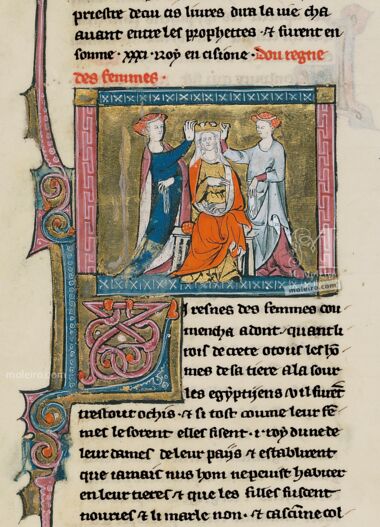 priestre deau cis liures dira la vie cha
auant entre les prophettes · et furent en
somme · xxxi · roy en cisione · Dou regne
des femmes ·
moleiro.com
Li resnes des femmes cou
moleiro.com
mencha adont · quant li
rois de crete ot ous les ho
mes de sa tiere a la sour
les egyptijens v il furet
trestout ochis · et si tost coume leur fe
mes le sorent elles fisent · i · roy dune de
leur dames de leur pays et establirent
que iamais nus hom ne peuist habiter
en leur tieres et que les filles fuscent
nouries et li marle non · et cascune col